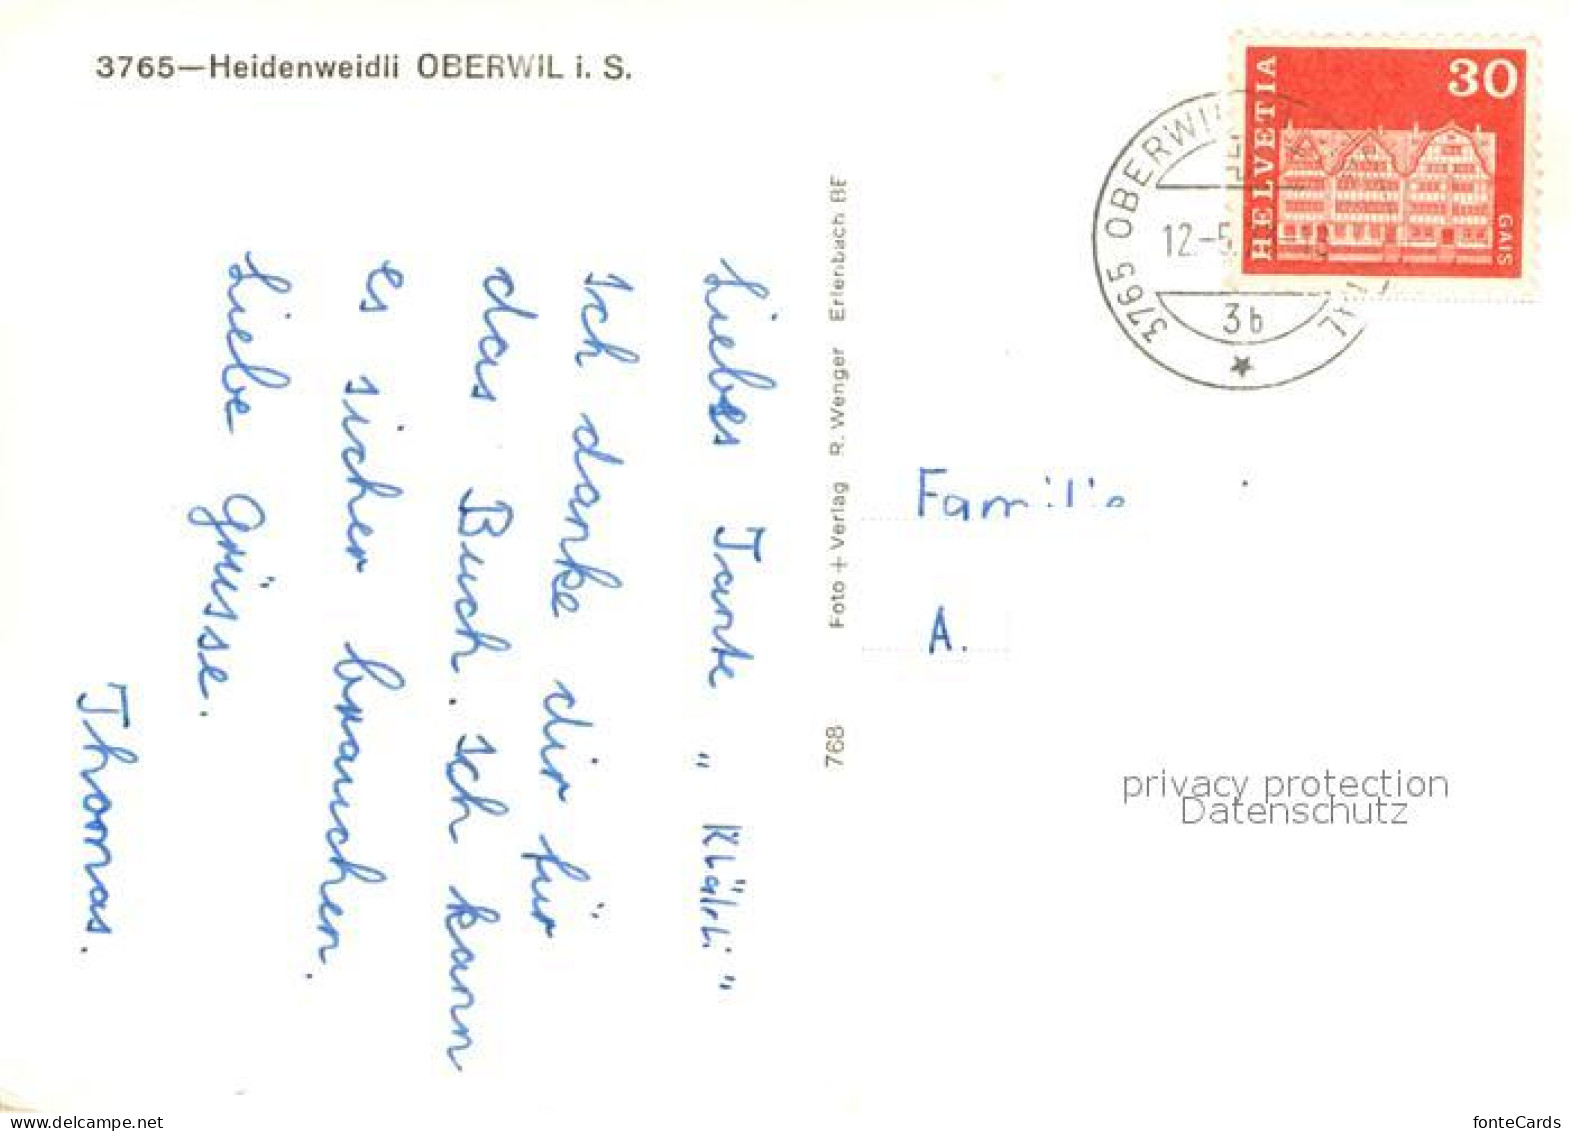 3765—Heidenweidli OBERWIL i. S.
HELVETIA
30
GAIS
3765 OBERWIL
12.-5
3b
Liebes Tante „Klärli"
Ich danke dir für
das Buch. Ich kann
es sicher brauchen.
Liebe Grüsse.
Thomas.
Foto + Verlag R. Wenger Erlenbach BE
768
Familie
A.
privacy protection
Datenschutz
www.delcampe.net
fonteCards